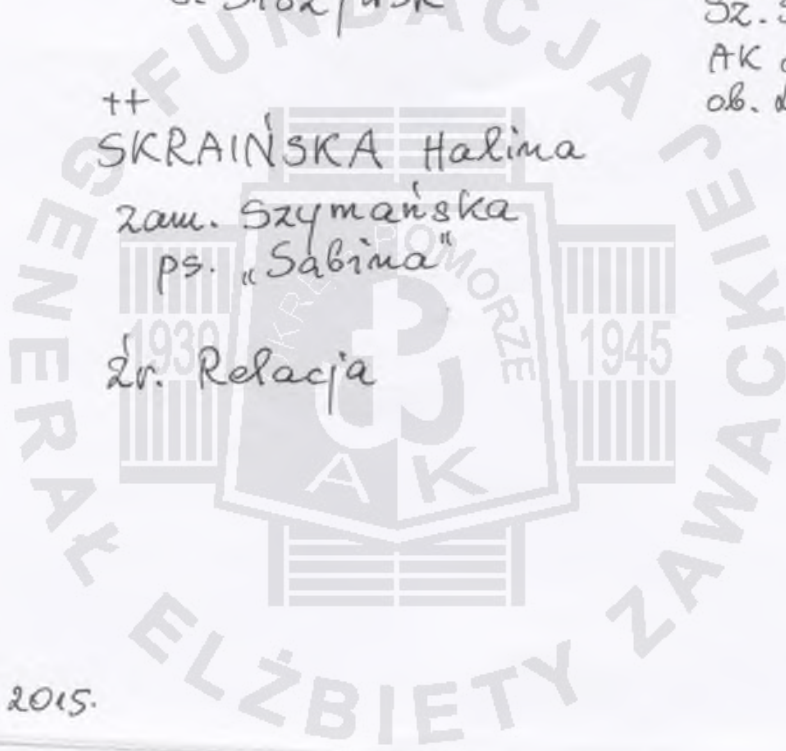 SZ. S
AK
ob.
++
SKRAIŃSKA Halina
zam. Szymańska
ps. „Sabina"
źr. Relacja
2015.
FUNDACJA GENERAŁ ELŻBIETY ZAWACKIEJ
OKRĘG POMORZE
1939
1945
AK